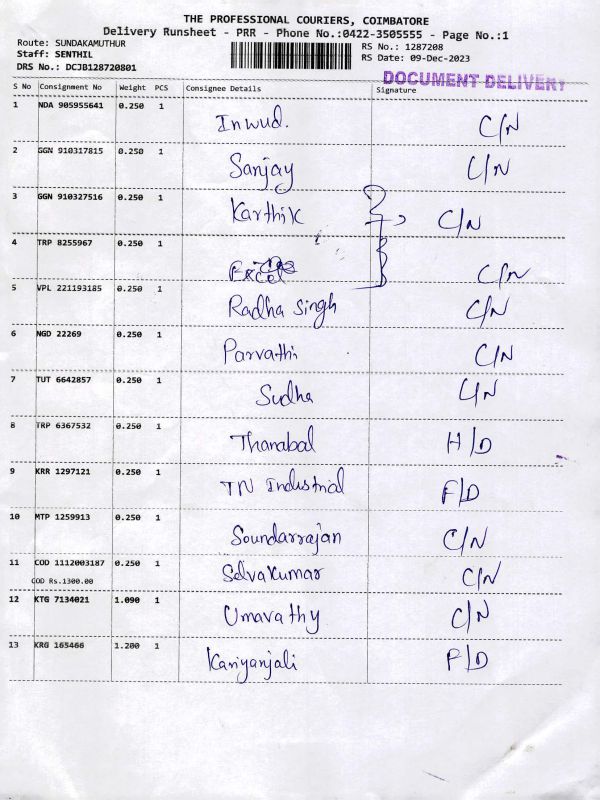 THE PROFESSIONAL COURIERS, COIMBATORE
Delivery Runsheet - PRR - Phone No.:0422-3505555 - Page No.:1
Route: SUNDAKAMUTHUR
Staff: SENTHIL
DRS No.: DCJB128720801
RS No.: 1287208
RS Date: 09-Dec-2023
DOCUMENT DELIVERY
S No Consignment No Weight PCS Consignee Details Signature
1 NDA 905955641 0.250 1 Inwud. C/N
2 GGN 910317815 0.250 1 Sanjay C/N
3 GGN 910327516 0.250 1 Karthik C/N
4 TRP 8255967 0.250 1 Excel C/N
5 VPL 221193185 0.250 1 Radha Singh C/N
6 NGD 22269 0.250 1 Parvathi C/N
7 TUT 6642857 0.250 1 Sudha C/N
8 TRP 6367532 0.250 1 Thanabal H/D
9 KRR 1297121 0.250 1 TN Industrial F/D
10 MTP 1259913 0.250 1 Soundarrajan C/N
11 COD 1112003187 0.250 1 Selvakumar C/N
COD Rs.1300.00
12 KTG 7134021 1.090 1 Umavathy C/N
13 KRG 165466 1.200 1 Kaniyanjali F/D